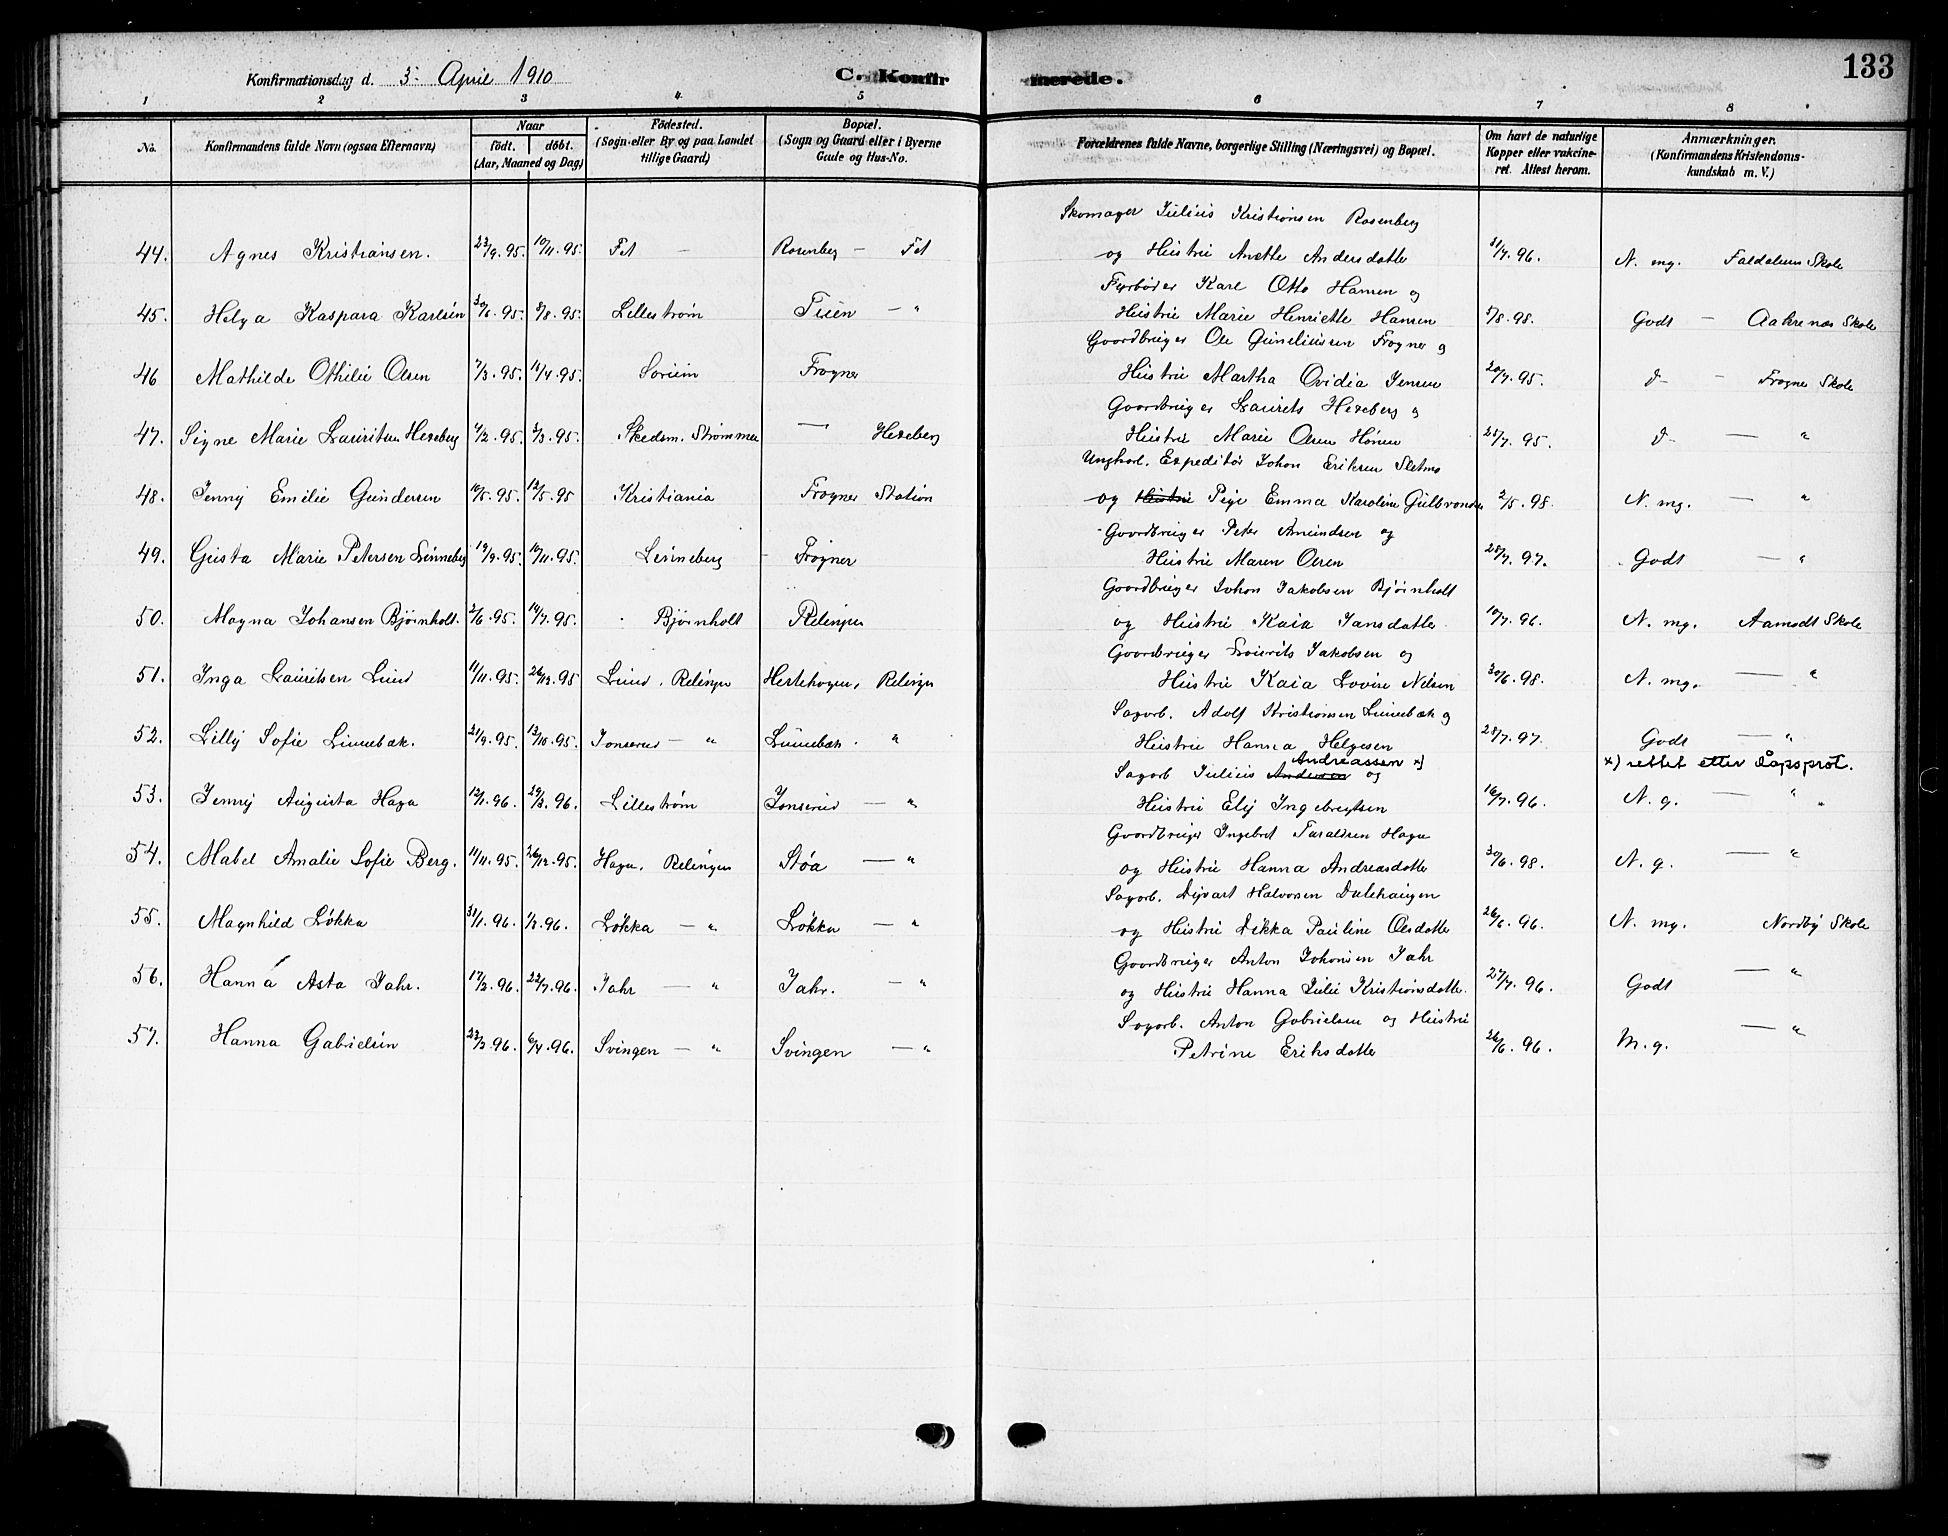 Konfirmationsdag d. 3. April 1910
C. Konfirmerede.
133
1 2 3 4 5 6 7 8
No.
Konfirmandens fulde Navn (ogsaa Efternavn)
Naar
födt. döbt.
(Aar, Maaned og Dag)
Födested.
(Sogn eller By og paa Landet
tillige Gaard)
Bopæl.
(Sogn og Gaard eller i Byerne
Gade og Hus-No.
Forældrenes fulde Navne, borgerlige Stilling (Næringsvei) og Bopæl.
Om havt de naturlige
Kopper eller vakcine-
ret. Attest herom.
Anmærkninger.
(Konfirmandens Kristendoms-
kundskab m. V.)
Skomager Julius Kristiansen Rosenberg
44. Agnes Kristiansen. 23/9. 95. 10/11. 95. Fet — Rosenberg — Fet og Hustru Anette Andersdatter 31/7. 96. N. mg. Faldalens Skole
Fyrbøder Karl Otto Hansen og
45. Helga Kaspara Karlsen 30/6. 95. 3/8. 95. Lillestrøm Tuen — " Hustru Marie Henriette Hansen 5/8. 98. Godt — Aakrenes Skole
Gaardbruger Ole Gundiusen Frogner og
46 Mathilde Othilie Olsen 7/3. 95. 14/4. 95. Sørum Frogner Hustru Martha Ovidia Jensen 20/7. 95. d— — Frogner Skole
Gaardbruger Laurits Hexeberg og
47. Signe Marie Lauritsen Hexeberg 7/2. 95. 3/3. 95. Skedsm. Strømmen — Hexeberg Hustru Marie Olsen Hønen 25/7. 95. d— — "
Ungkarl. Expeditør Johan Eriksen Sletmo
48. Jenny Emilie Gundersen 10/5. 95. 12/5. 95 Kristiania Frogner Station og Hustru Pige Emma Karoline Gulbrandsen 2/5. 98. N. mg. — "
Gaardbruger Peter Amundsen og
49. Gusta Marie Petersen Linneberg 19/9. 95. 10/11. 95. Linneberg Frogner Hustru Maren Olsen 28/7. 97. Godt — "
Gaardbruger Johan Jakobsen Bjørnholt
50. Magna Johansen Bjørnholt. 2/6. 95. 14/7. 95. Bjørnholt Relingen og Hustru Kaia Jansdatter 10/7. 96. N. mg. Aamodt Skole
Gaardbruger Laurits Jakobsen og
51. Inga Lauritsen Lund 11/11. 95. 26/12. 95 Lund, Relingen Hertehogen, Relingen Hustru Kaia Lovise Nilsen 30/6. 98. N. mg. — "
Sagarb. Adolf Kristiansen Linnebæk og
52. Lilly Sofie Linnebæk. 21/9. 95. 13/10. 95. Jonserud — " Linnebæk. " Hustru Hanna Helgesen 28/7. 97. Godt — "
Andreassen x) x) rettet etter dåpsprot.
Sagarb Julius Andersen og
53. Jenny Augusta Haga 12/1. 96. 29/3. 96. Lillestrøm Jonserud — " Hustru Elly Ingebregtsen 16/7. 96. N. g. — " "
Gaardbruger Ingebret Taraldsen Haga
54. Mabel Amalie Sofie Berg. 11/11. 95. 26/12. 95. Haga, Relingen Støa — " og Hustru Hanna Andreasdatter 30/6. 98. N. g. — "
Sagarb. Dyvart Halvorsen Dalehaugen
55. Magnhild Løkka 31/1. 96. 1/3. 96. Løkka — " Løkka — " og Hustru Dikka Pauline Olsdatter 26/6. 96. N. mg. Nordby Skole
Gaardbruger Anton Johansen Jahr
56. Hanna Asta Jahr. 17/2. 96. 22/7. 96. Jahr — " Jahr. — " og Hustru Hanna Julie Kristiansdatter. 27/7. 96. Godt — "
Sagarb. Anton Gabrielsen og Hustru
57. Hanna Gabrielsen 22/2. 96. 6/4. 96. Svingen — " Svingen — " Petrine Eriksdatter 26/6. 96. M. g. — "